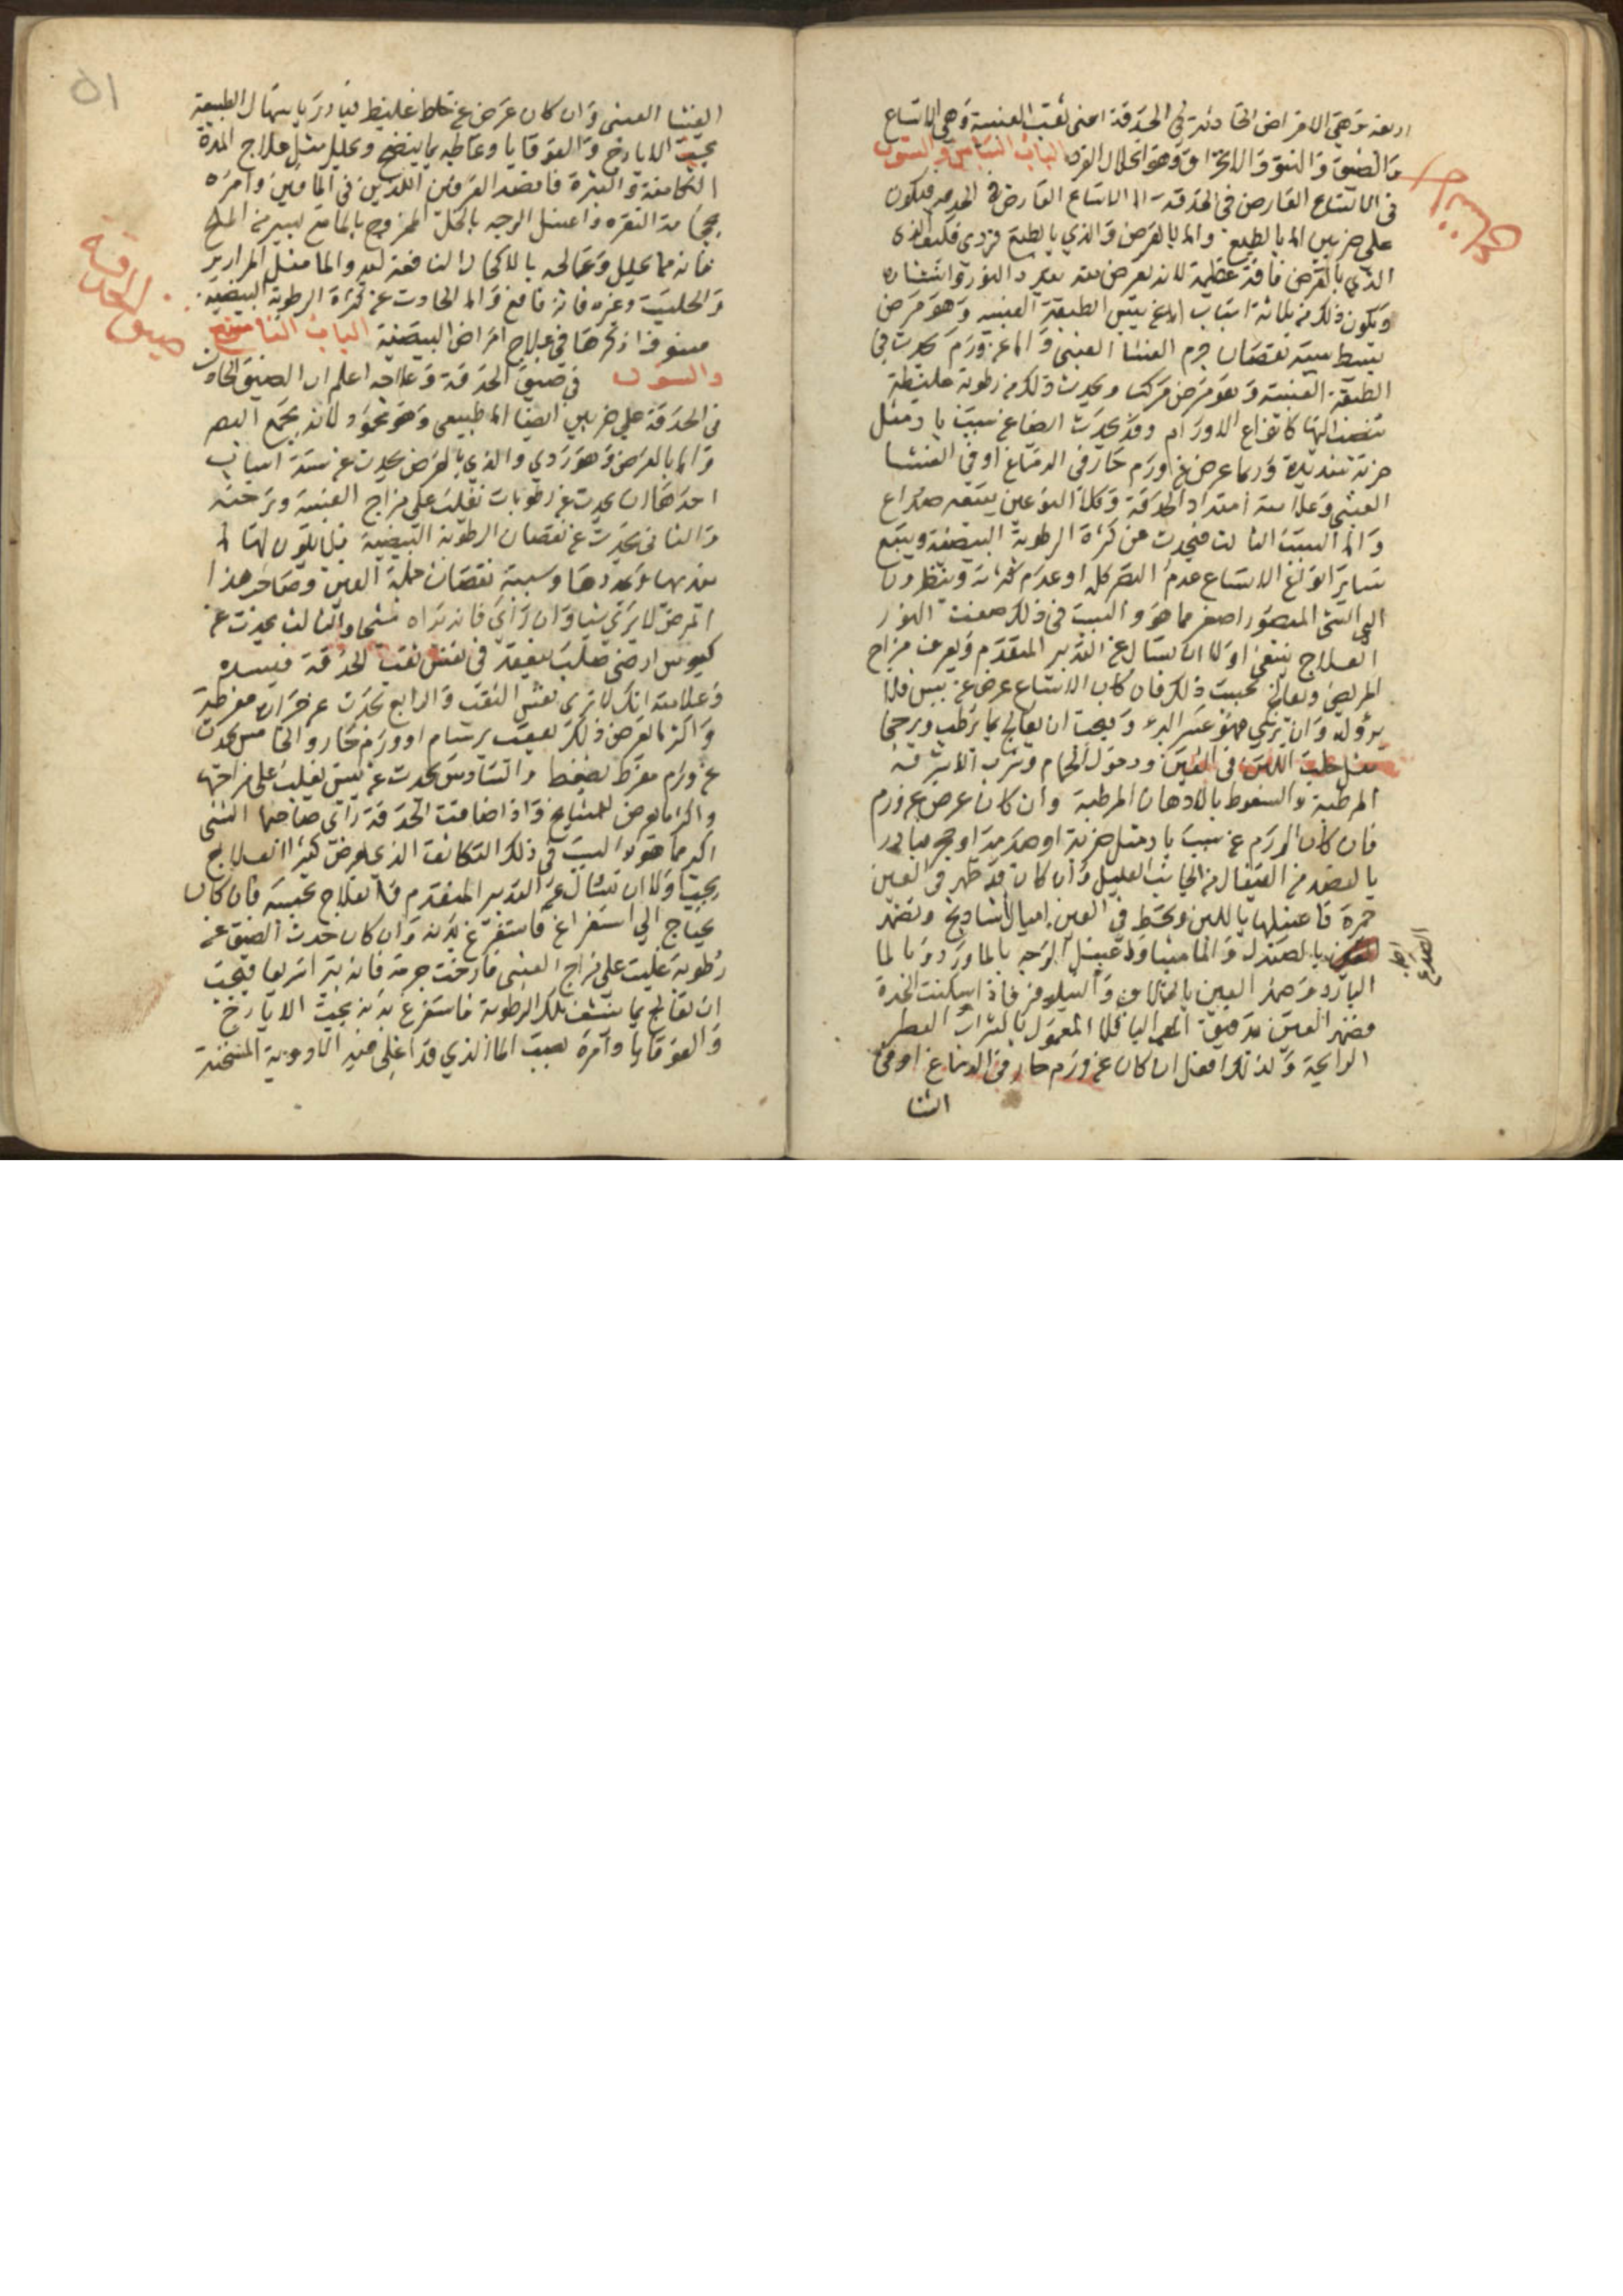 اربعة وهي الامراض الحادثة في الحدقة اعني ثقب العنبية وهي الاتساع
والضيق والنتو والانخراق وهو انحلال الفرد الباب الثامن والستون
في الاتساع العارض في الحدقة اما الاتساع العارض في الحدقة فيكون
على ضربين اما بالطبع واما بالعرض والذي بالطبع فردي
الذي بالعرض فافته عظيمة لانه يعرض منه تبدد النور وانتشاره
ويكون ذلك من ثلاثة اسباب اما عن يبس الطبقة العنبية وهو مرض
بسيط يتبعه نقصان جرم الغشا العنبي واما عن ورم يحدث في
الطبقة العنبية وهو مرض مركب ويحدث ذلك من رطوبة غليظة
تنصب اليها كانواع الاورام وقد يحدث ايضا عن سبب باد مثل
ضربة شديدة وربما عرض عن ورم حار في الدماغ او في الغشا
العنبي وعلامته امتداد الحدقة وكلا النوعين يتبعه صداع
واما السبب الثالث فيحدث عن كثرة الرطوبة البيضية ويتبع
ساير انواع الاتساع عدم البصر كله او عدم اكثره وينظرون
الى الشي المبصور اصغر مما هو والسبب في ذلك ضعف النور
العلاج ينبغي اولا ان يسال عن التدبير المتقدم ويعرف مزاج
المريض ويعالج بحسب ذلك فان كان الاتساع عرض عن يبس فلا
برؤ له وان بري فهو عسر البرء ويجب ان يعالج بما يرطب ويرخي
مثل حلب اللبن في العين ودخول الحمام وشرب الاشربة
المرطبة والسعوط بالادهان المرطبة وان كان عرض عن ورم
فان كان الورم عن سبب باد مثل ضربة او صدمة او حجر فبادر
بالفصد من القيفال من الجانب العليل وان كان قد ظهر في العين
حمرة فاغسلها باللبن وتخط في العين اميال شاديخ وتضمد
بالصندل والماميثا وتغسل الوجه بالماورد وبالما
البارد وضمد العين بالهنالاف والنيلوفر فاذا سكنت الحدة
فضمد العين بدقيق الباقلا المعمول بالشراب العطر
الرايحة وكذلك افعل ان كان عن ورم حار في الدماغ او في
الغشا
الغشا العنبي وان كان عرض عن خلط غليظ فبادر باسهال الطبيعة
بحب الايارج والقوقايا وعالجه بما ينضج ويحلل مثل علاج المدة
الكامنة والبثرة فافصد العرقين اللذين في الماقين وامره
بحجامة النقرة واغسل الوجه بالخل الممزوج بالما مع يسير من الملح
فانه مما يحلل وعالجه بالاكحال النافعة له والما مثل المراير
والحلتيت وغيره فانه نافع واما الحادث عن كثرة الرطوبة البيضية
فسوف اذكرها في علاج امراض البيضية الباب التاسع
والستون في ضيق الحدقة وعلاجه اعلم ان الضيق الحادث
في الحدقة على ضربين ايضا اما طبيعي وهو محمود لانه يجمع البصر
واما بالعرض وهو ردي والذي بالعرض يحدث عن ستة اسباب
احدها ان يحدث عن رطوبات تغلب على مزاج العنبية وترخيه
والثاني يحدث عن نقصان الرطوبة البيضية فلا يكون لها ما
يمددها وسببه نقصان جملة العين وصاحب هذا
المرض لا يرى شيا وان راى فانه يراه شبحا والثالث يحدث عن
كيموس ارضي صلب يعقد في نفس ثقب الحدقة فيسده
وعلامته انك لا ترى نفس الثقب والرابع يحدث عن حرارة مفرطة
واكثر ما يعرض ذلك بعقب برسام او ورم حار والخامس يحدث
عن ورم مفرط يضغط والسادس يحدث عن يبس يغلب على مزاجها
واكثر ما يعرض للمشايخ واذا ضاقت الحدقة راى صاحبها الشي
اكبر مما هو والسبب في ذلك التكاثف الذي يعرض كثيرا العلاج
يجب اولا ان تسال عن التدبير المتقدم والعلاج بحسبه فان كان
يحتاج الى استفراغ فاستفرغ بدنه وان كان حدث الضيق عن
رطوبة غلبت على مزاج العنبي فارخت جرمه فانه يبرا سريعا فيجب
ان تعالج بما ينشف تلك الرطوبة فاستفرغ بدنه بحب الايارج
والقوقايا وامره بصب الما الذي قد اغلي فيه الادوية المسخنة
ضيق الحدقة
٥١